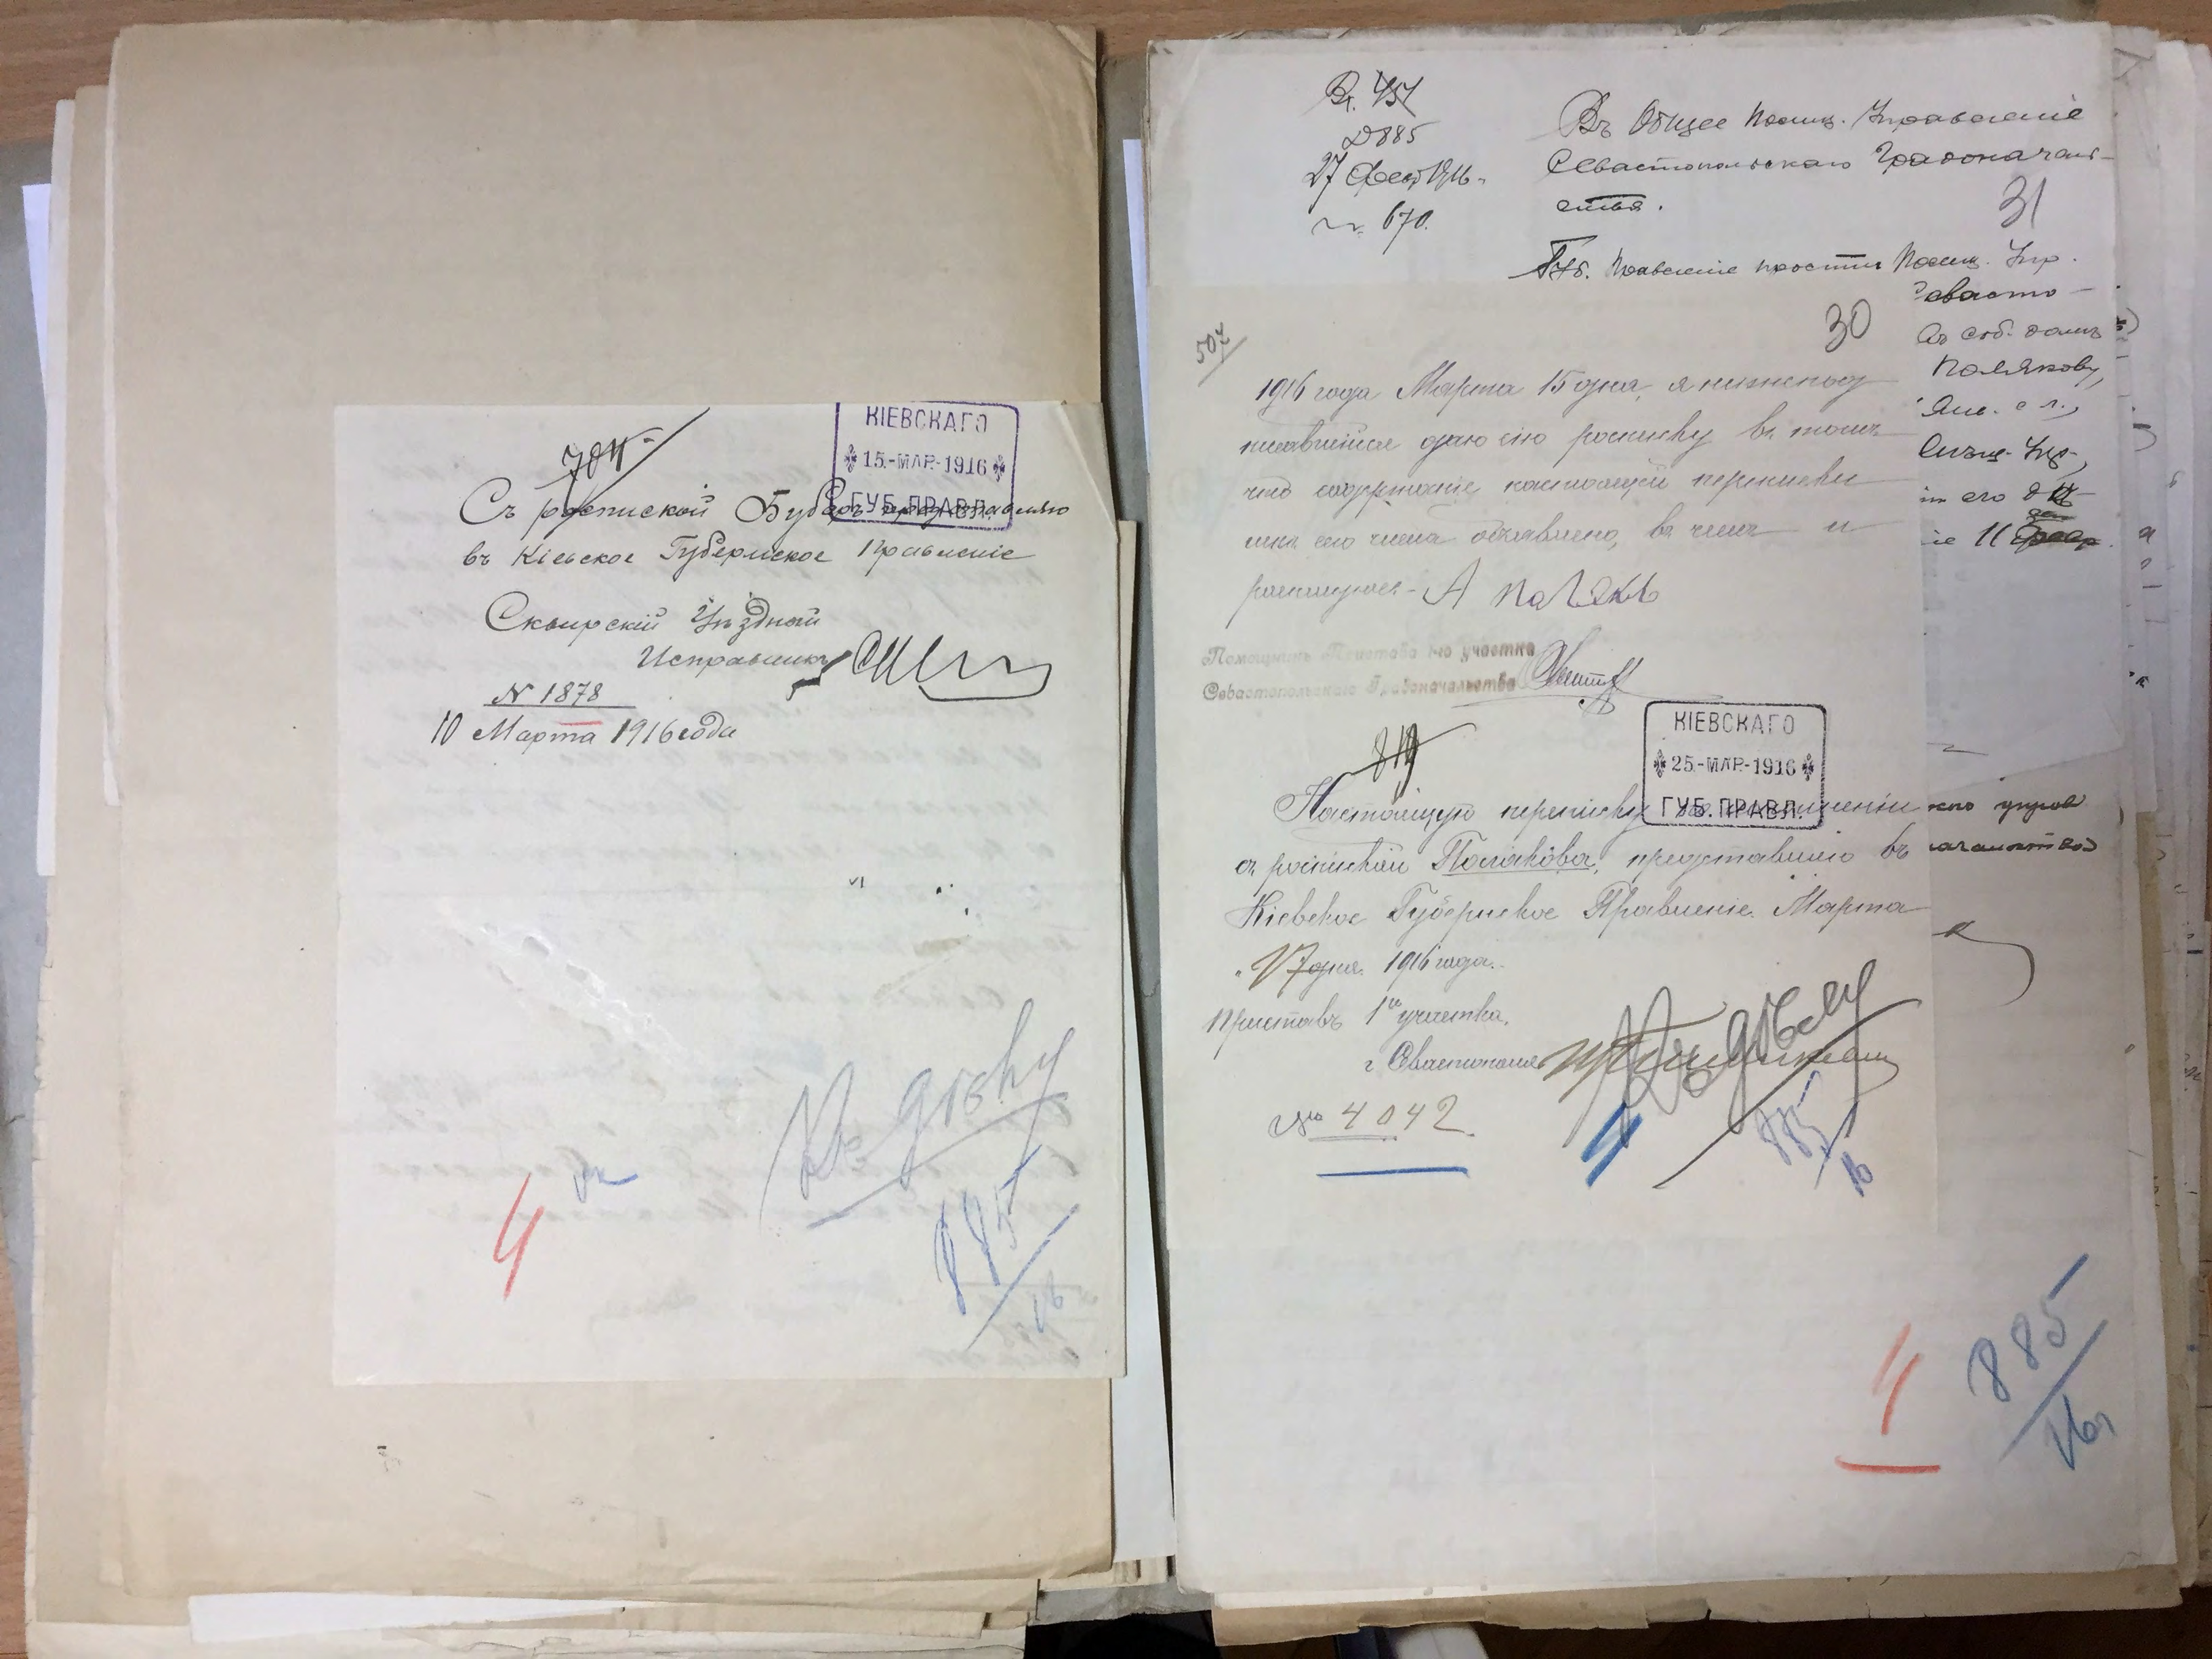 704
КІЕВСКАГО
15.-МАР.-1916
ГУБ. ПРАВЛ.
Съ роспиской представляю
въ Кіевское Губернское Правленіе
Сквирскій Уѣздный
Исправникъ
N 1878
10 Марта 1916 года
Къ дѣлу
885
16
4
Вт. 451
Д 885
27 Февр 1916
№ 670.
Въ Общее Полиц. Управленіе
Севастопольскаго Градоначаль-
ства.
31
Губ. Правленіе проситъ Полиц. Упр.
Севасто-
Полякову,
30
507
1916 года Марта 15 дня, я нижепод
писавшійся даю сію росписку въ томъ
что содержаніе настоящей переписки
мнѣ сего числа объявлено, въ чемъ и
росписуюсь - А Поляковъ
Помощникъ Пристава 1-го участка
Севастопольскаго Градоначальства
819
КІЕВСКАГО
25.-МАР.-1916
ГУБ. ПРАВЛ.
Настоящую переписку по исполненіи
съ роспиской Полякова, представляю въ
Кіевское Губернское Правленіе. Марта
17 дня 1916 года.
Приставъ 1го участка,
г. Севастополя
Къ дѣлу
№ 4042
4
885
16
4
885
16 г